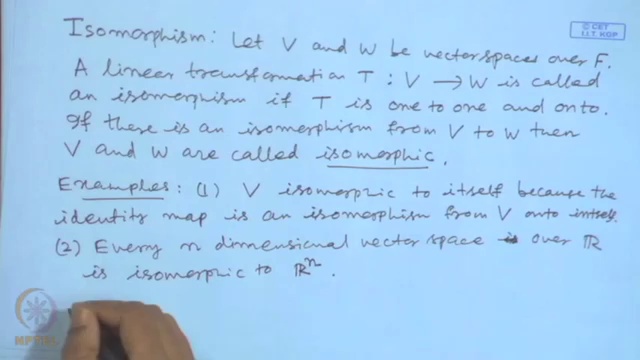 © CET
I.I.T. KGP
Isomorphism: Let V and W be vector spaces over F.
A linear transformation T : V → W is called
an isomorphism if T is one to one and onto.
If there is an isomorphism from V to W then
V and W are called isomorphic.
Examples: (1) V isomorphic to itself because the
identity map is an isomorphism from V onto intself.
(2) Every n dimensional vector space is over ℝ
is isomorphic to ℝⁿ.
NPTEL